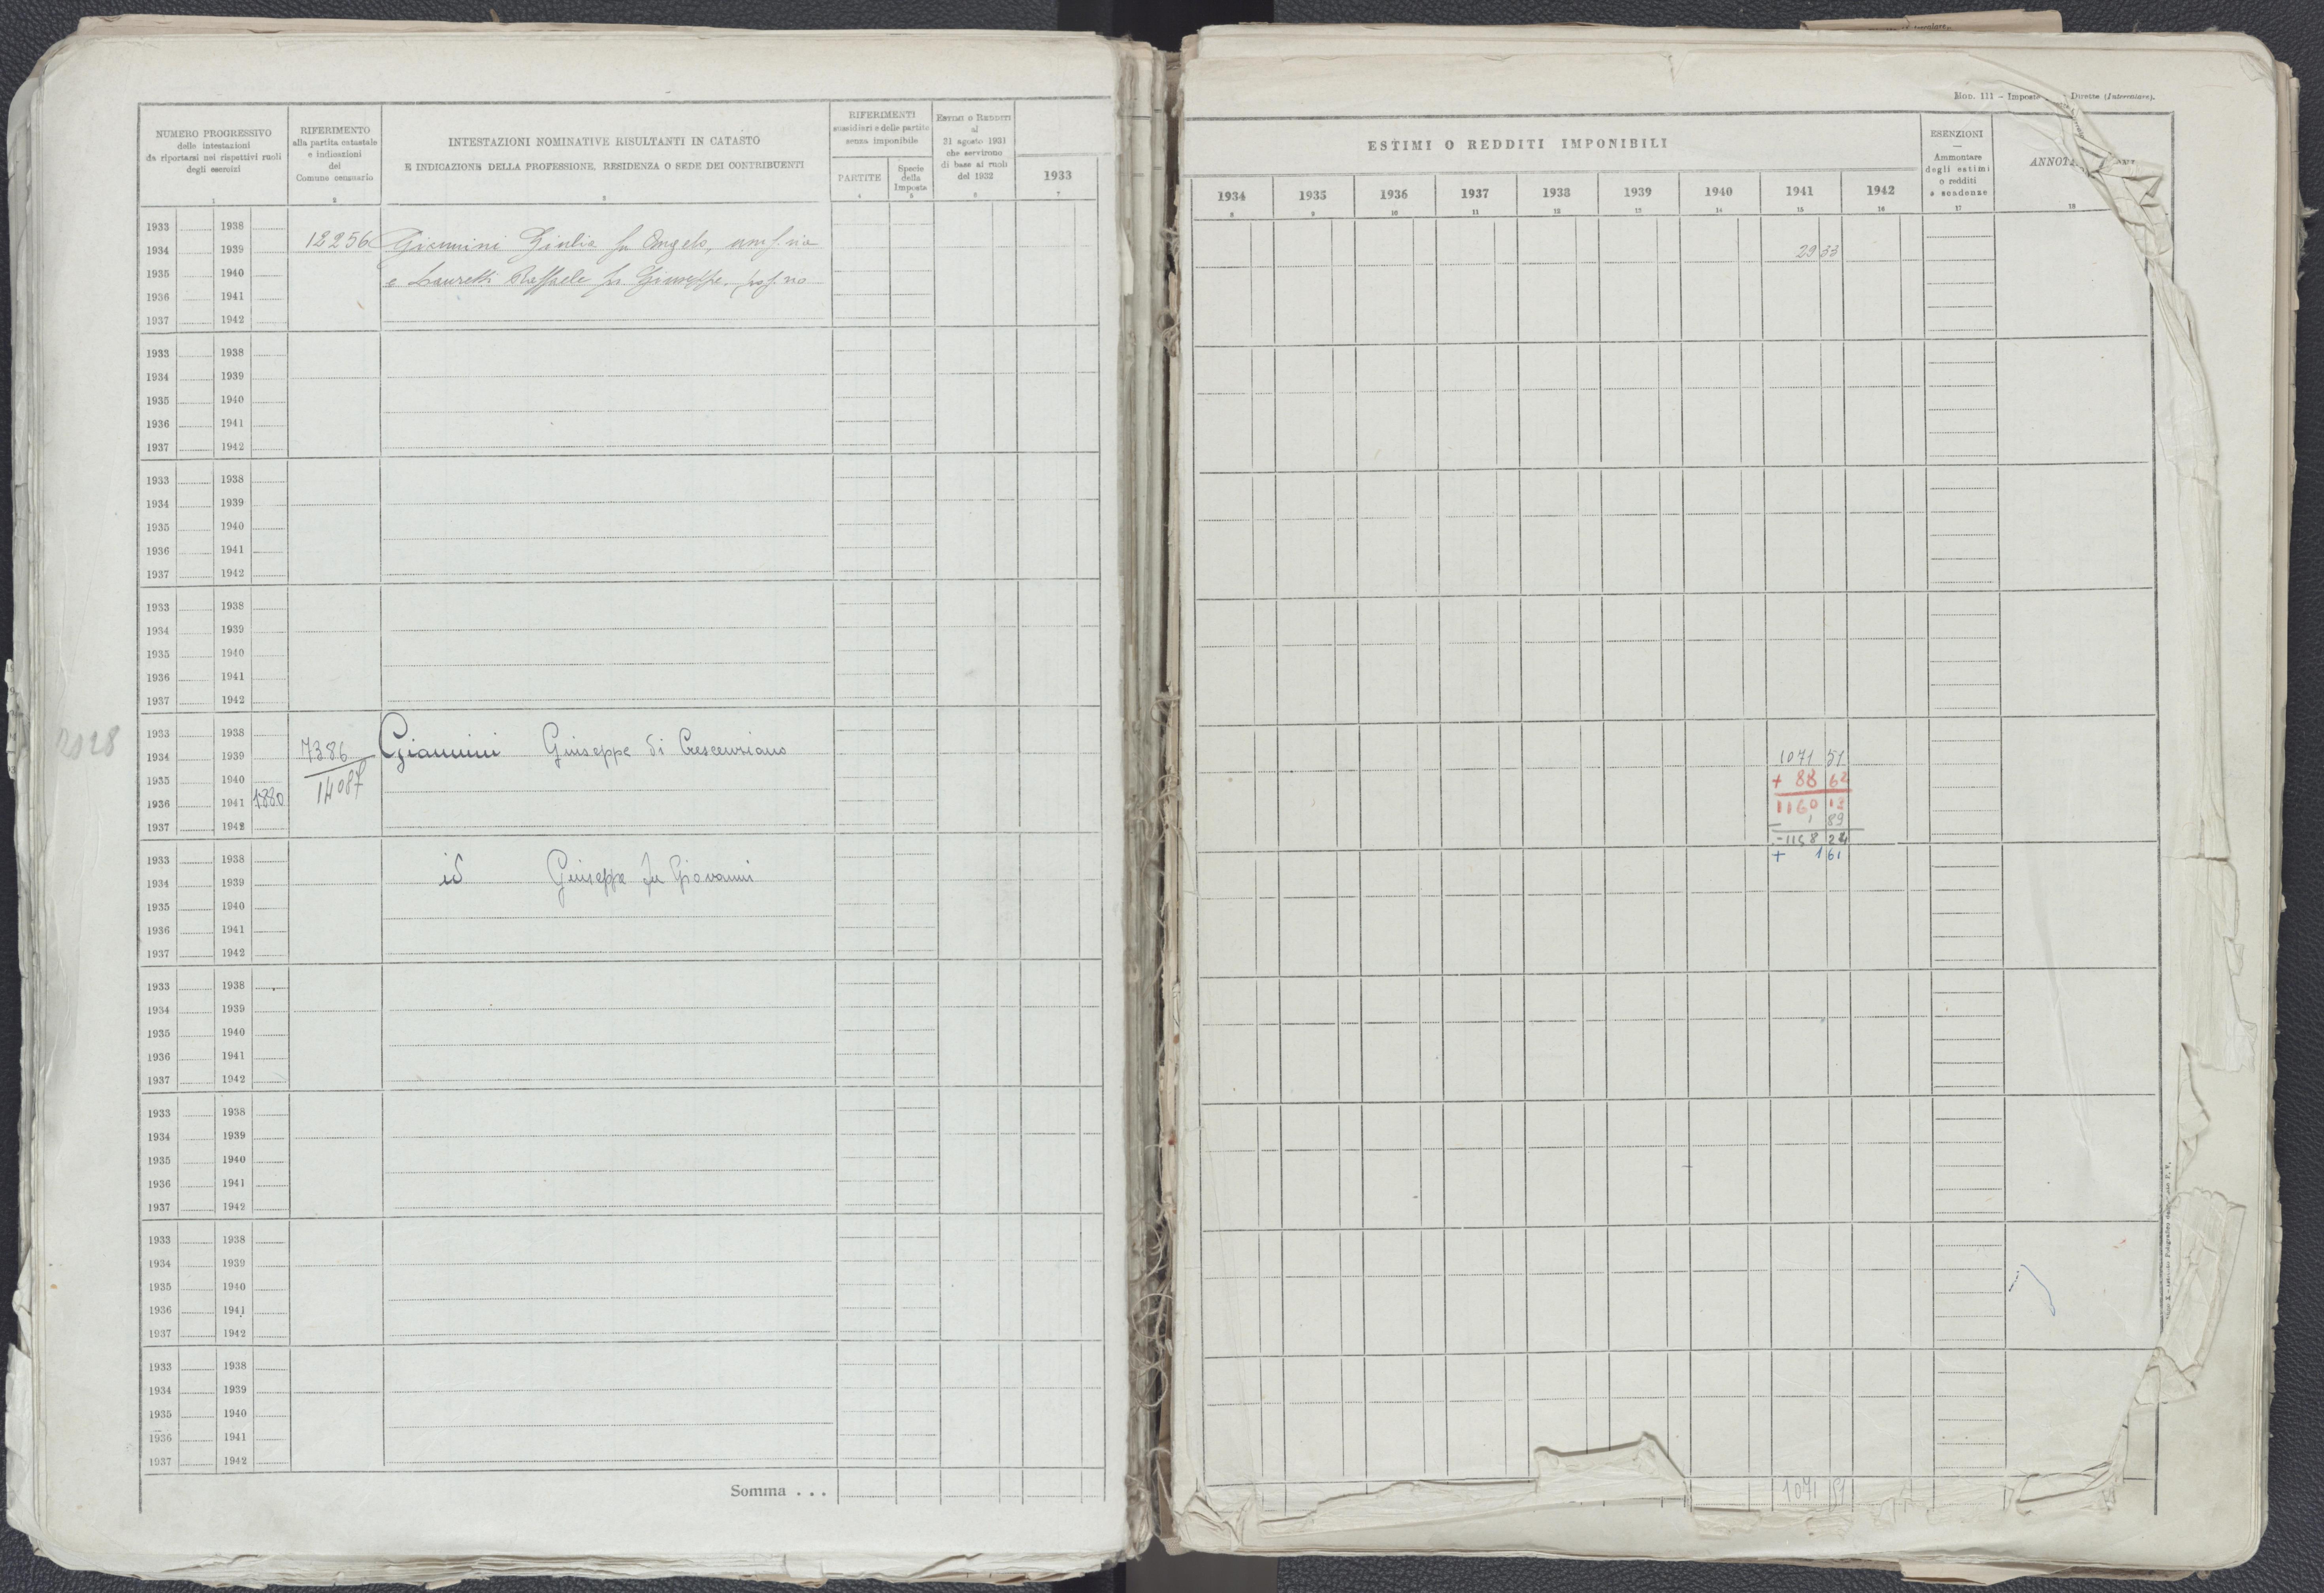 Mod. 111 – Imposte Dirette (Intercalare).
NUMERO PROGRESSIVO
delle intestazioni
da riportarsi nei rispettivi ruoli
degli esercizi
1
RIFERIMENTO
alla partita catastale
e indicazioni
del
Comune censuario
2
INTESTAZIONI NOMINATIVE RISULTANTI IN CATASTO
E INDICAZIONE DELLA PROFESSIONE, RESIDENZA O SEDE DEI CONTRIBUENTI
3
RIFERIMENTI
sussidiari e delle partite
senza imponibile
PARTITE
4
Specie
della
Imposta
5
ESTIMI O REDDITI
al
31 agosto 1931
che servirono
di base ai ruoli
del 1932
6
1933
7
ESTIMI O REDDITI IMPONIBILI
1934 1935 1936 1937 1938 1939 1940 1941 1942
8 9 10 11 12 13 14 15 16
ESENZIONI
—
Ammontare
degli estimi
o redditi
e scadenze
17
18
1933 1938
1934 1939 12256 Giannini Giulia fu Angelo, 29 33
1935 1940 e Lauretti Raffaele fu Giuseppe,
1936 1941
1937 1942
1933 1938
1934 1939
1935 1940
1936 1941
1937 1942
1933 1938
1934 1939
1935 1940
1936 1941
1937 1942
1933 1938
1934 1939
1935 1940
1936 1941
1937 1942
2028
1933 1938
1934 1939 7386 Giannini Giuseppe di Crescenziano 1071 51
1935 1940 14087 + 88 62
1936 1941 1880 1160 13
1937 1942 – 1 89
-1158 24
+ 1 61
1933 1938
1934 1939 id Giuseppe fu Giovanni
1935 1940
1936 1941
1937 1942
1933 1938
1934 1939
1935 1940
1936 1941
1937 1942
1933 1938
1934 1939
1935 1940
1936 1941
1937 1942
1933 1938
1934 1939
1935 1940
1936 1941
1937 1942
1933 1938
1934 1939
1935 1940
1936 1941
1937 1942
Somma . . . 1071 51